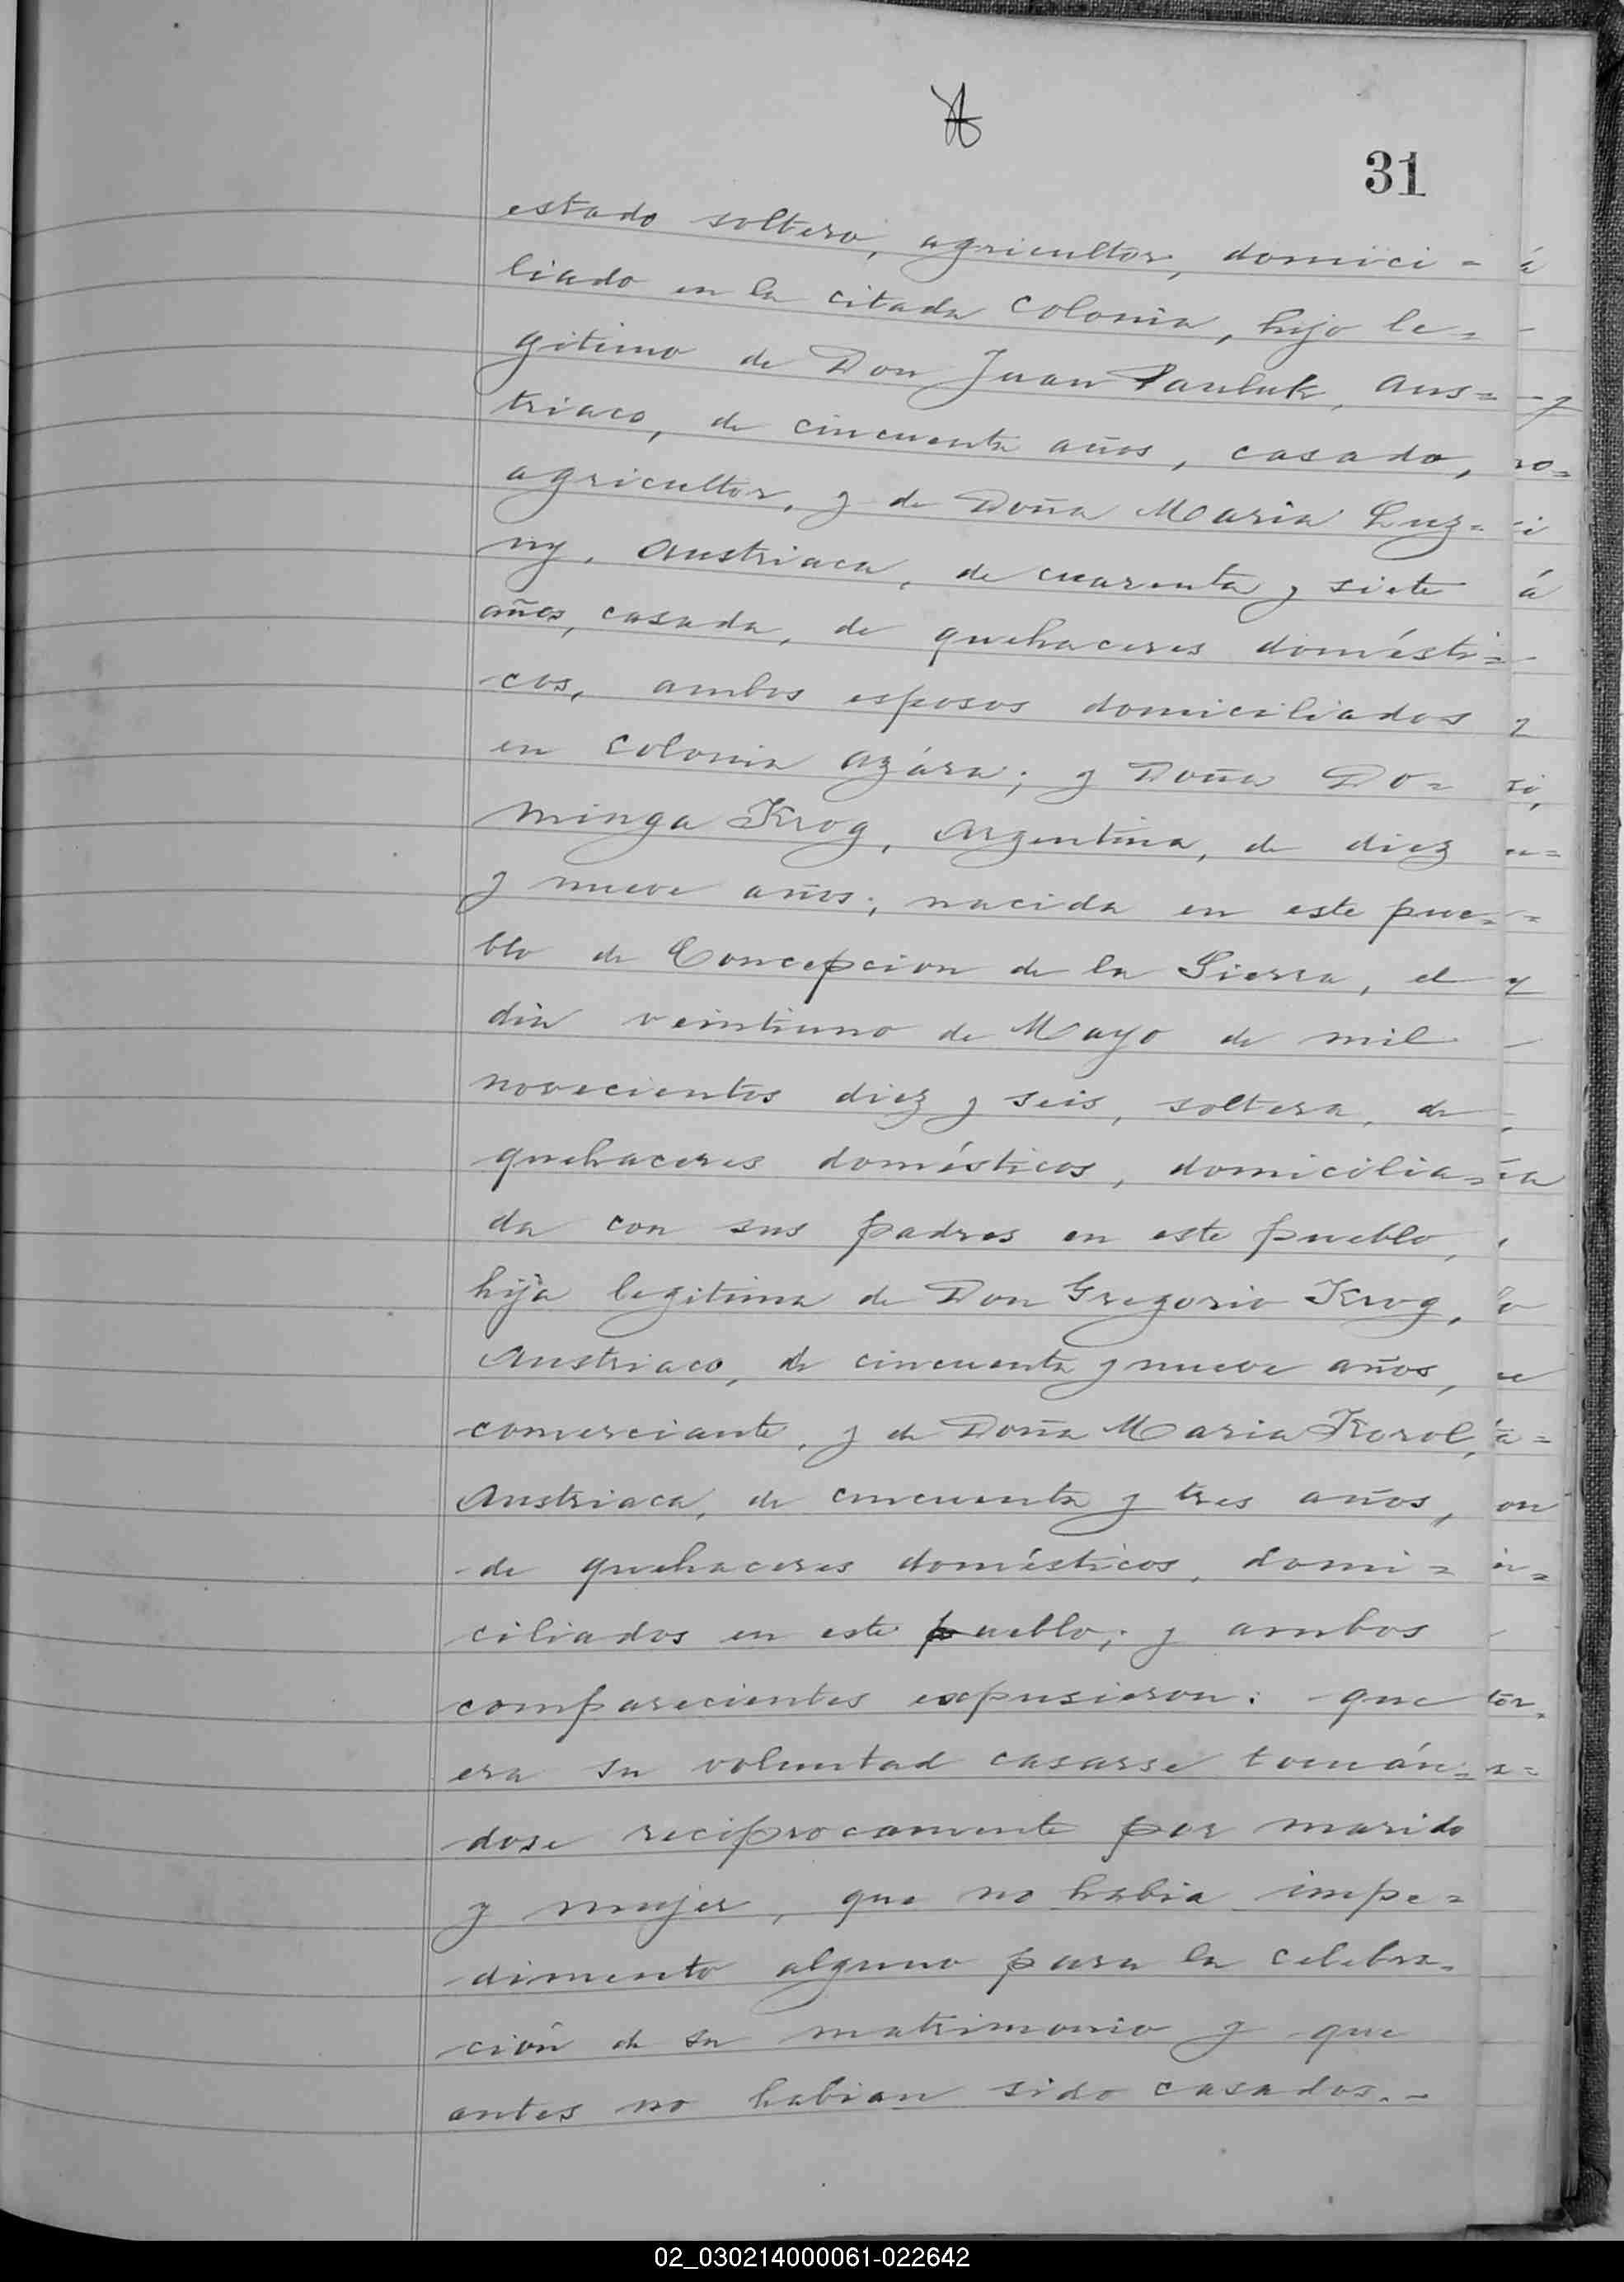 31
estado soltero, agricultor, domici=
liado en la citada Colonia, hijo le=
gitimo de Don Juan Pauluk, Aus=
triaco, de cincuenta años, casado,
agricultor, y de Doña Maria Luz=
ny, Austriaca, de cuarenta y siete
años, casada, de quehaceres domésti=
cos, ambos esposos domiciliados
en Colonia Azára; y Doña Do=
minga Krog, Argentina, de diez
y nueve años; nacida en este pue=
blo de Concepcion de la Sierra, el
dia veintiuno de Mayo de mil
novecientos diez y seis, soltera, de
quehaceres domésticos, domicilia=
da con sus padres en este pueblo,
hija legitima de Don Gregorio Krog,
Austriaco, de cincuenta y nueve años,
comerciante, y de Doña Maria Korol,
Austriaca, de cincuenta y tres años,
de quehaceres domésticos, domi=
ciliados en este pueblo; y ambos
comparecientes expusieron: que
era su voluntad casarse tomán=
dose reciprocamente por marido
y mujer, que no habia impe=
dimento alguno para la celebra=
ción de su matrimonio y que
antes no habian sido casados.-
02_030214000061-022642